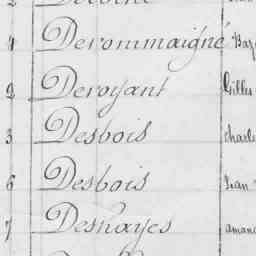 4 Derommaigné
2 Deroyant Gilles
3 Desbois charle
6 Desbois Jean
7 Deshayes amand